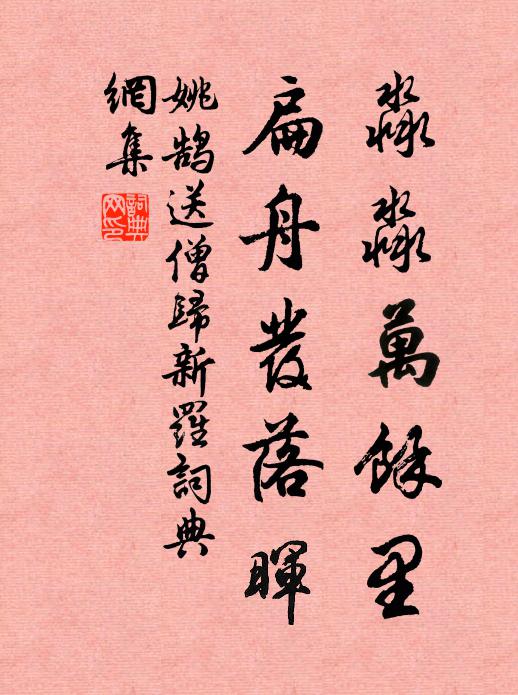 淼淼萬餘里
扁舟發落暉
姚鵠送僧歸新羅詞典
網集
詞典
网印